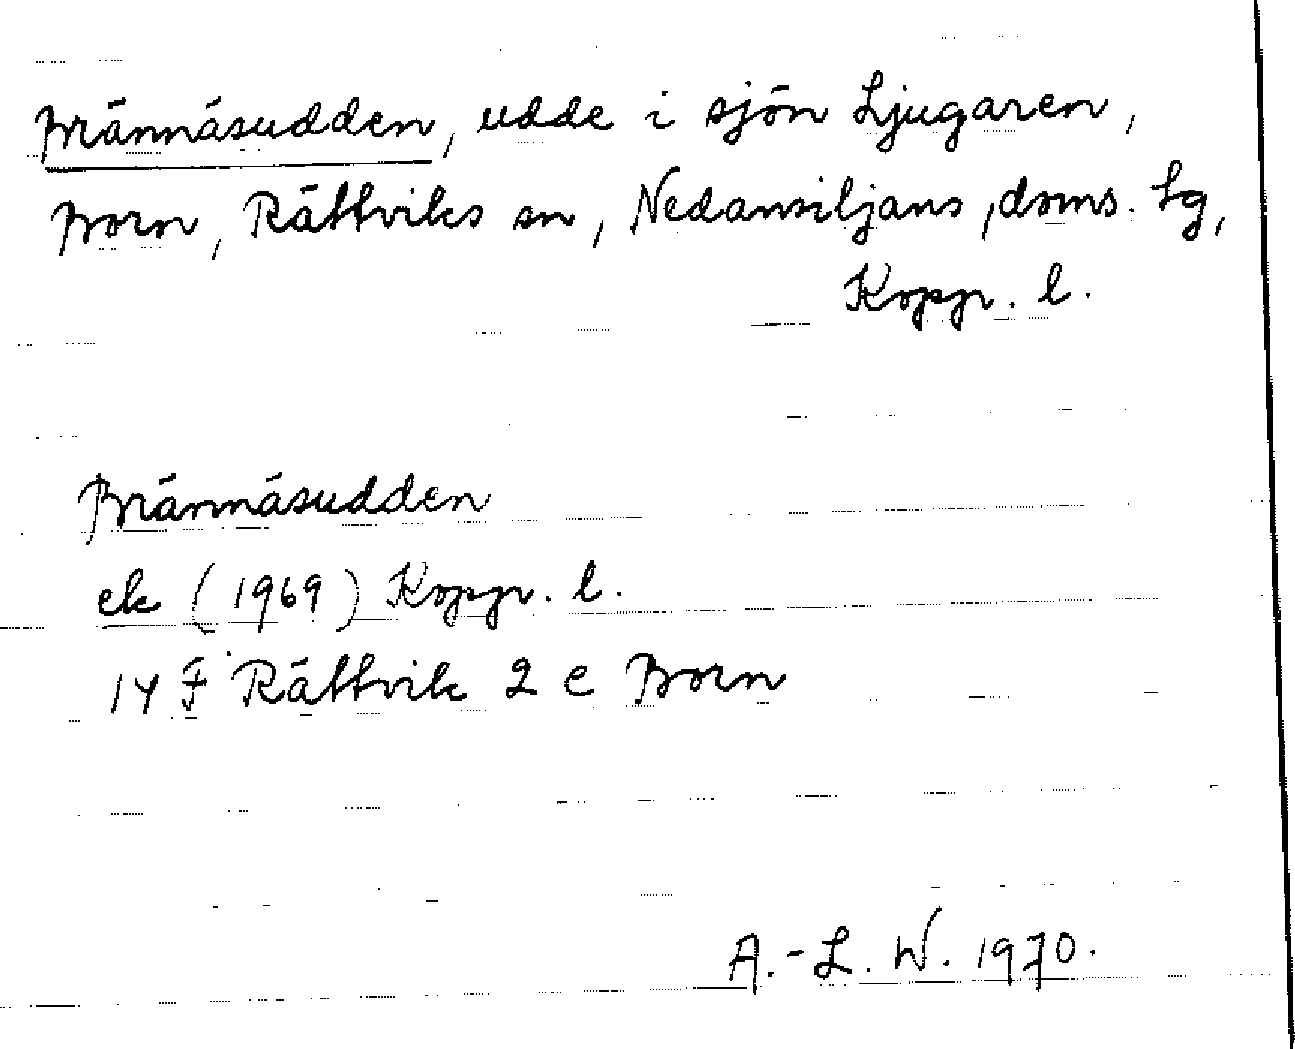 Brännäsudden, udde i sjön Ljugaren,
Born, Rättviks sn, Nedansiljans, doms. lg,
Kopp. l.
Brännäsudden
ek (1969) Kopp. l.
14 F Rättvik 2 e Born
A.-L. W. 1970.